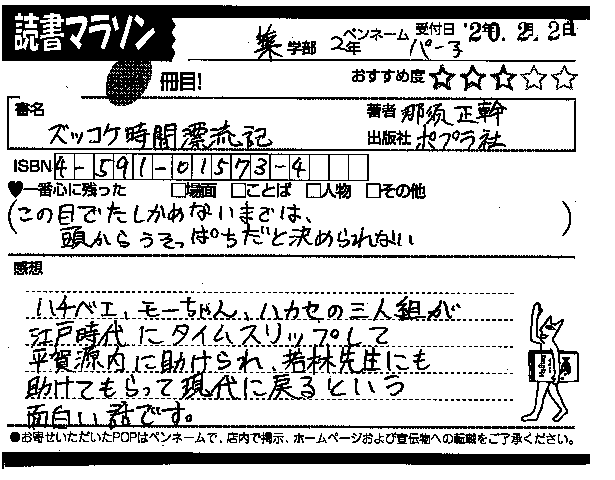 読書マラソン
薬学部 2年 ペンネーム パー子 受付日 '20.2.2日
冊目! おすすめ度☆☆☆☆☆
書名 ズッコケ時間漂流記
著者 那須正幹
出版社 ポプラ社
ISBN 4-591-01573-4
♥一番心に残った □場面 □ことば □人物 □その他
(この目でたしかめないまでは、
頭からうそっぱちだと決められない)
感想
ハチベエ、モーちゃん、ハカセの三人組が
江戸時代にタイムスリップして
平賀源内に助けられ、若林先生にも
助けてもらって現代に戻るという
面白い話です。
●お寄せいただいたPOPはペンネームで、店内で掲示、ホームページおよび宣伝物への転載をご了承ください。